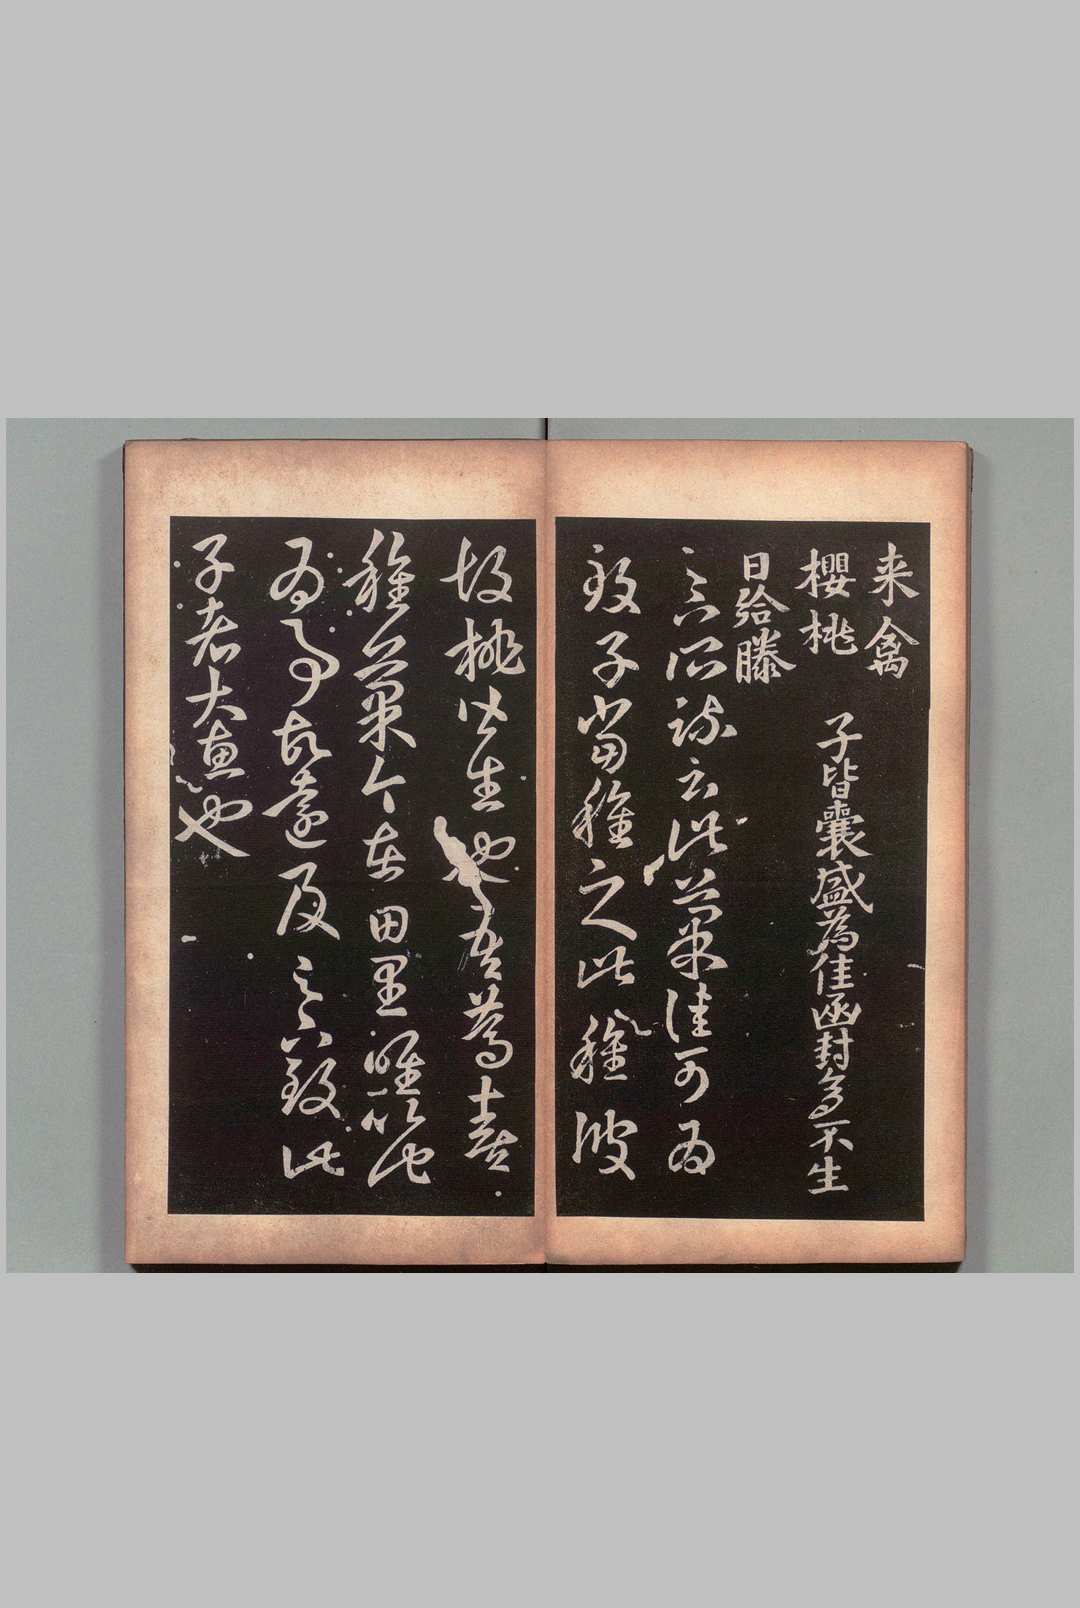 来禽
櫻桃
日給滕
子皆囊盛為佳函封多不生
足下所疏云此菓佳可為
致子當種之此種彼
胡桃皆生也吾篤喜
種菓今在田里唯以此
為事故遠及足下致此
子者大惠也